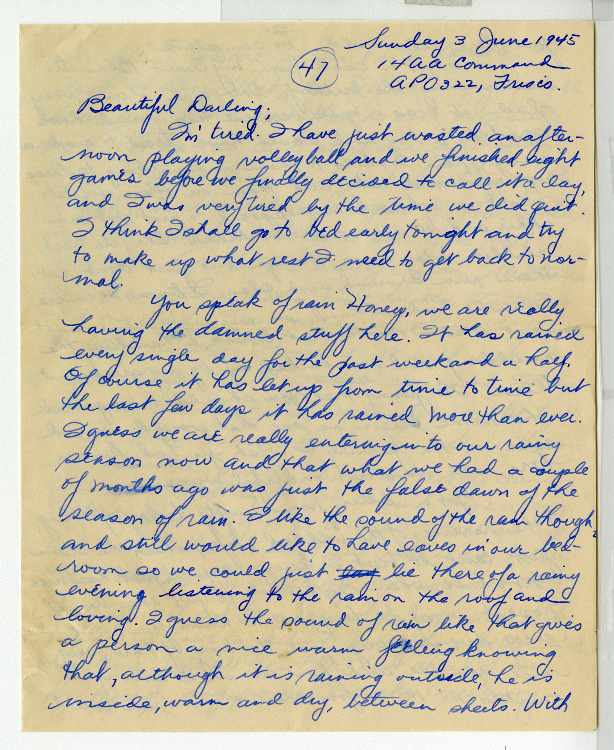 Sunday 3 June 1945
47
14AA Command
APO 322, Frisco.
Beautiful Darling;
I'm tired. I have just wasted an after-
noon playing volleyball and we finished eight
games before we finally decided to call it a day,
and I was very tired by the time we did quit.
I think I shall go to bed early tonight and try
to make up what rest I need to get back to nor-
mal.
You speak of rain Honey, we are really
having the damned stuff here. It has rained
every single day for the past week and a half.
Of course it has let up from time to time but
the last few days it has rained more than ever.
I guess we are really entering into our rainy
season now and that what we had a couple
of months ago was just the false dawn of the
season of rain. I like the sound of the rain though
and still would like to have eaves in our bed-
room so we could just lay lie there of a rainy
evening listening to the rain on the roof and
loving. I guess the sound of rain like that gives
a person a nice warm feeling knowing
that, although it is raining outside, he is
inside, warm and dry, between sheets. With